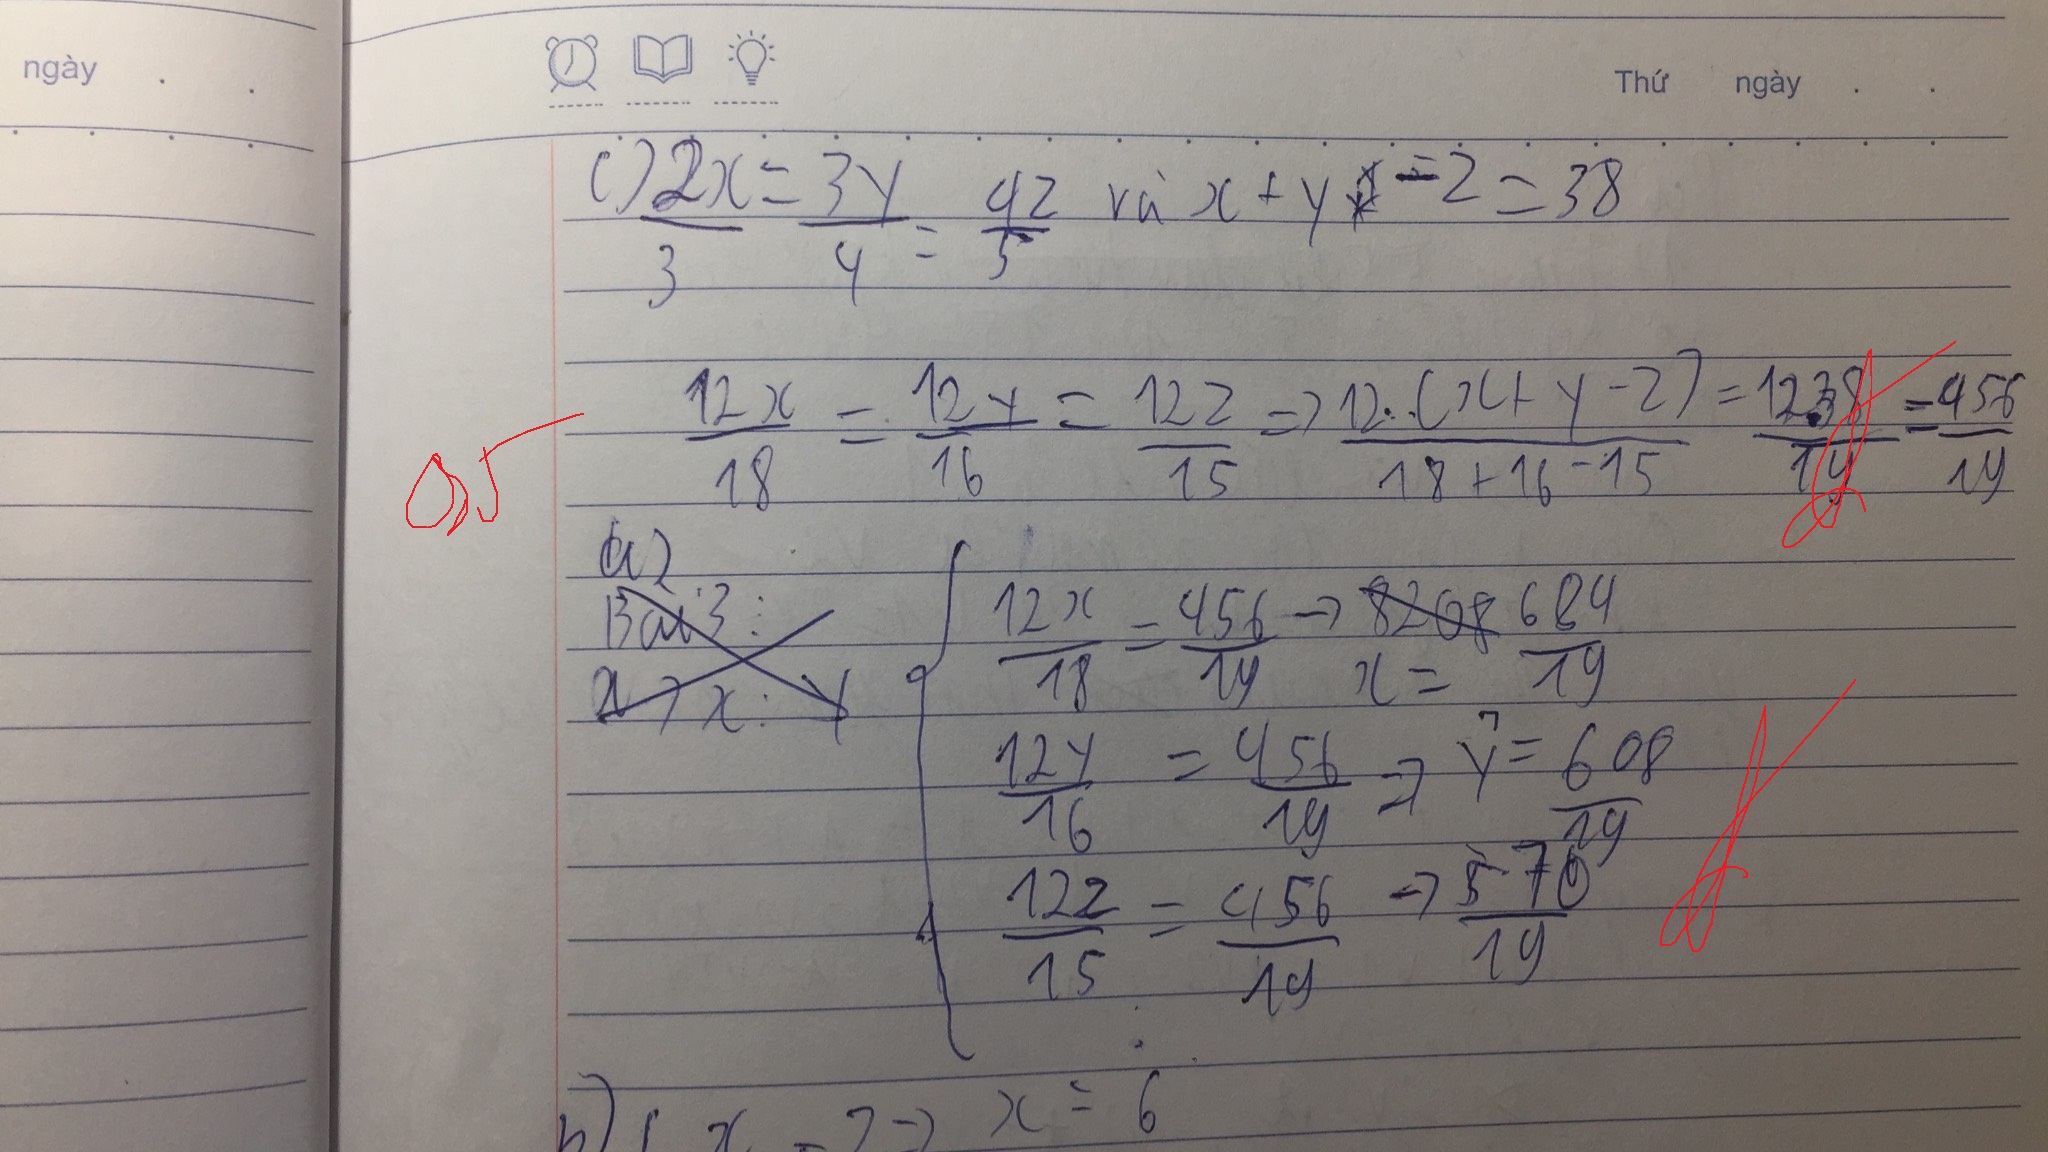 ngày . .
Thứ ngày . .
c) 2x/3 = 3y/4 = 4z/5 và x + y - z = 38
12x/18 = 12y/16 = 12z/15 => 12.(x + y - z)/18 + 16 - 15 = 12.38/19 = 456/19
0,5
a)
Bài 3:
x > x : y
12x/18 = 456/19 → 8208 x = 684/19
12y/16 = 456/19 => y = 608/19
12z/15 = 456/19 → 570/19
b) x = 6